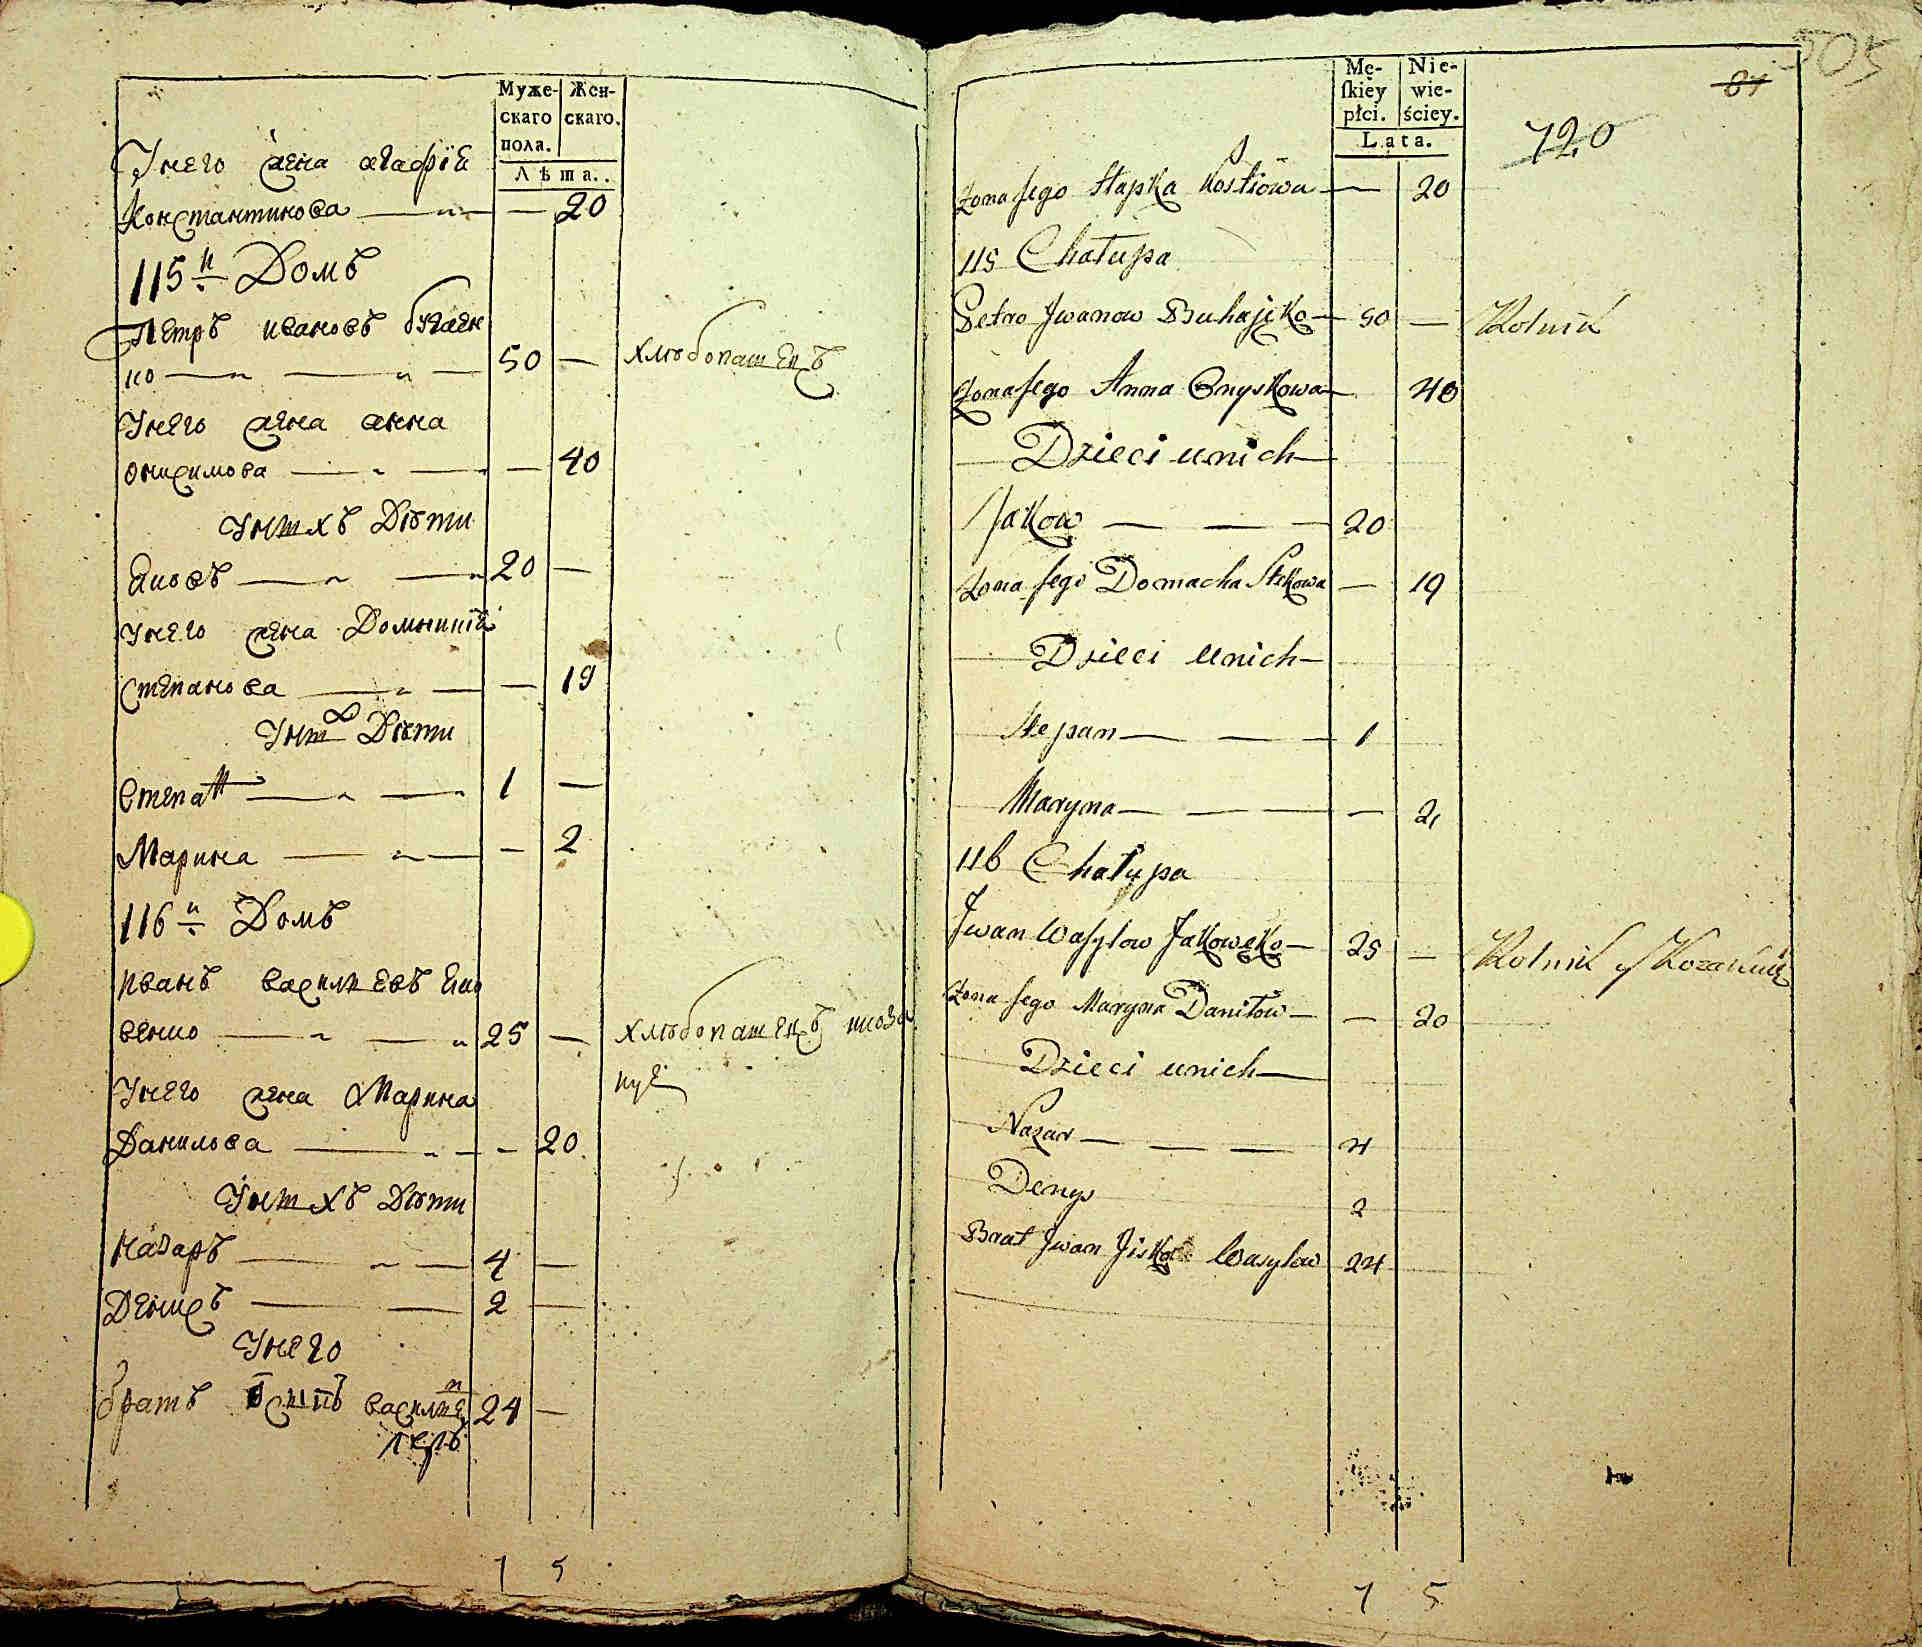 Муже-
скаго
пола.
Жен-
скаго.
Лѣта..
Унего жена агафія
Константинова — 20
115й Домъ
Петръ ивановъ бугаен
ко 50 — хлѣбопашецъ
Унего жена анна
онисимова — 40
Унихъ Дѣти
Яковъ 20 —
Унего жена Домникія
Степанова — 19
Уних Дѣти
Степан 1 —
Марина — 2
116й Домъ
Иванъ васильевъ Яко
венко 25 — хлѣбопашецъ
Унего жена Марина
Данилова — 20
Унихъ Дѣти
Назаръ 4 —
Денисъ 2 —
Унего
братъ 24 —
7 5
505
87
720
Mę-
skiey
płci.
Nie-
wie-
ściey.
Lata.
Żona Jego Hapka Kostiowa — 20
115 Chałupa
Petro Jwanow Buhajęko — 50 — Rolnik
Żona Jego Anna Onyskowa — 40
Dzieci unich
Jakow — 20
Żona Jego Domacha Stekowa — 19
Dzieci unich
Stepan — 1
Maryna — 2
116 Chałupa
Jwan Wasylow Jakowęko — 25 — Rolnik
Żona Jego Maryna Daniłow — 20
Dzieci unich
Nazar — 4
Denys 2
Brat Jwan Wasylow 24
7 5